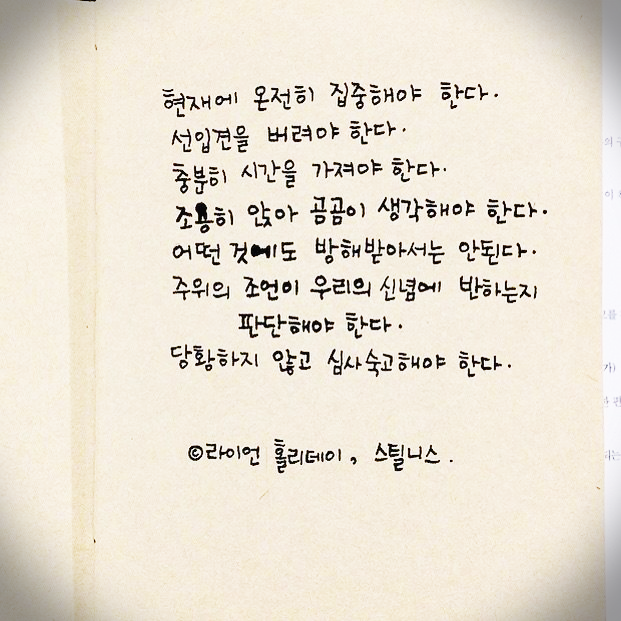 현재에 온전히 집중해야 한다.
선입견을 버려야 한다.
충분히 시간을 가져야 한다.
조용히 앉아 곰곰이 생각해야 한다.
어떤 것에도 방해받아서는 안된다.
주위의 조언이 우리의 신념에 반하는지
판단해야 한다.
당황하지 않고 심사숙고해야 한다.
©라이언 홀리데이, 스틸니스.